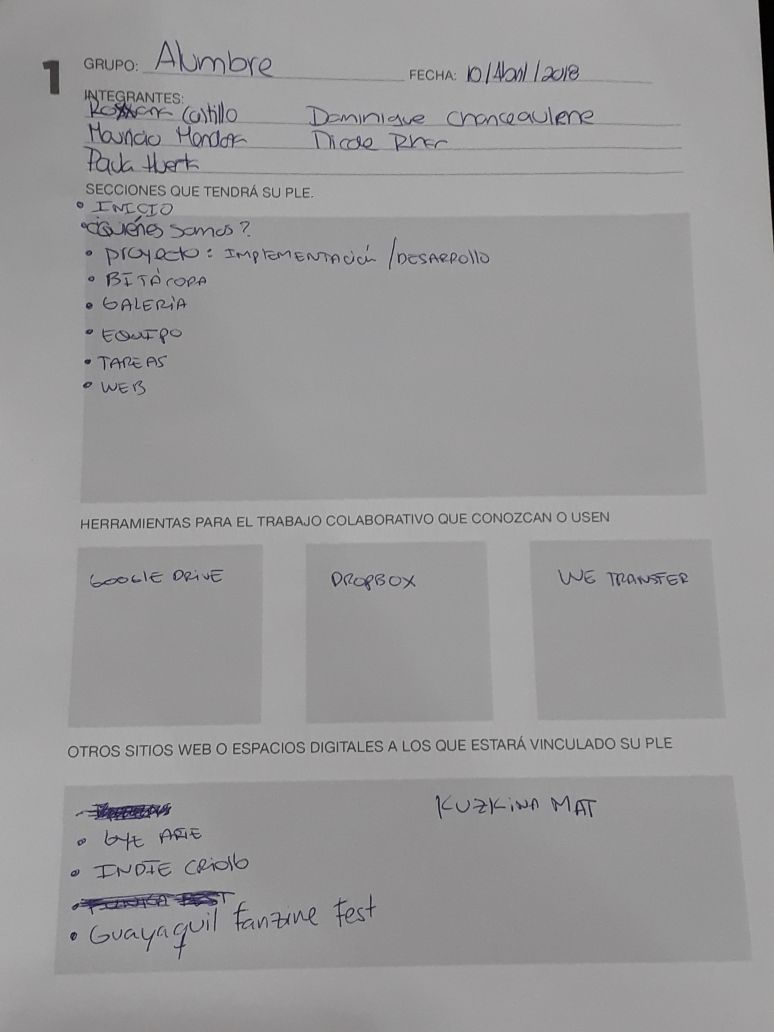 1
GRUPO: Alumbre FECHA: 10/Abril/2018
INTEGRANTES:
Castillo Dominique Chonceaulene
Mauricio
Paula
SECCIONES QUE TENDRÁ SU PLE.
• INICIO
• ¿Quiénes somos?
• proyecto: IMPLEMENTACIÓN / DESARROLLO
• BITÁCORA
• GALERÍA
• EQUIPO
• TAREAS
• WEB
HERRAMIENTAS PARA EL TRABAJO COLABORATIVO QUE CONOZCAN O USEN
GOOGLE DRIVE DROPBOX WE TRANSFER
OTROS SITIOS WEB O ESPACIOS DIGITALES A LOS QUE ESTARÁ VINCULADO SU PLE
KUZKINA MAT
• GYE ARTE
• INDIE CRIOLLO
• Guayaquil Fanzine Fest